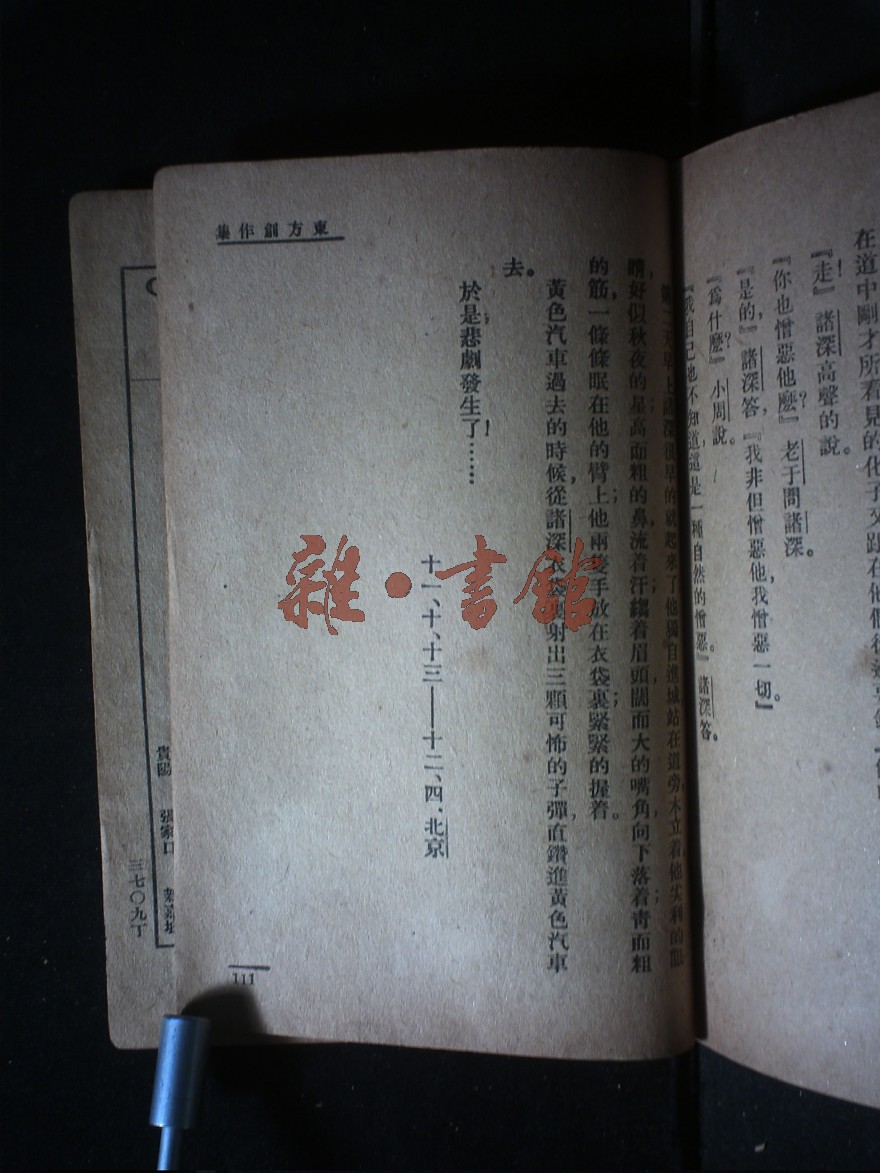 在道中剛才所看見的化子又
『走!』諸深高聲的說。
『你也憎惡他麽?』老于問諸深。
『是的,』諸深答,『我非但憎惡他,我憎惡一切。』
『爲什麽?』小周說。
『我自己也不知道,這是一種自然的憎惡。』諸深答。
早上諸深很早的就起來了他獨自進城站在道旁,木立着他尖利的眼
睛,好似秋夜的星;高而粗的鼻,流着汗;縐着眉頭,闊而大的嘴角,向下落着;靑而粗
的筋,一條條眠在他的臂上;他兩隻手放在衣袋裏;緊緊的握着。
黃色汽車過去的時候,從諸深衣袋裏射出三顆可怖的子彈,直鑽進黃色汽車
去。
於是,悲劇發生了!……
十一、十、十三——十二、四、北京
東方創作集
111
貴陽 張家口
三七〇九丁
雜·書館